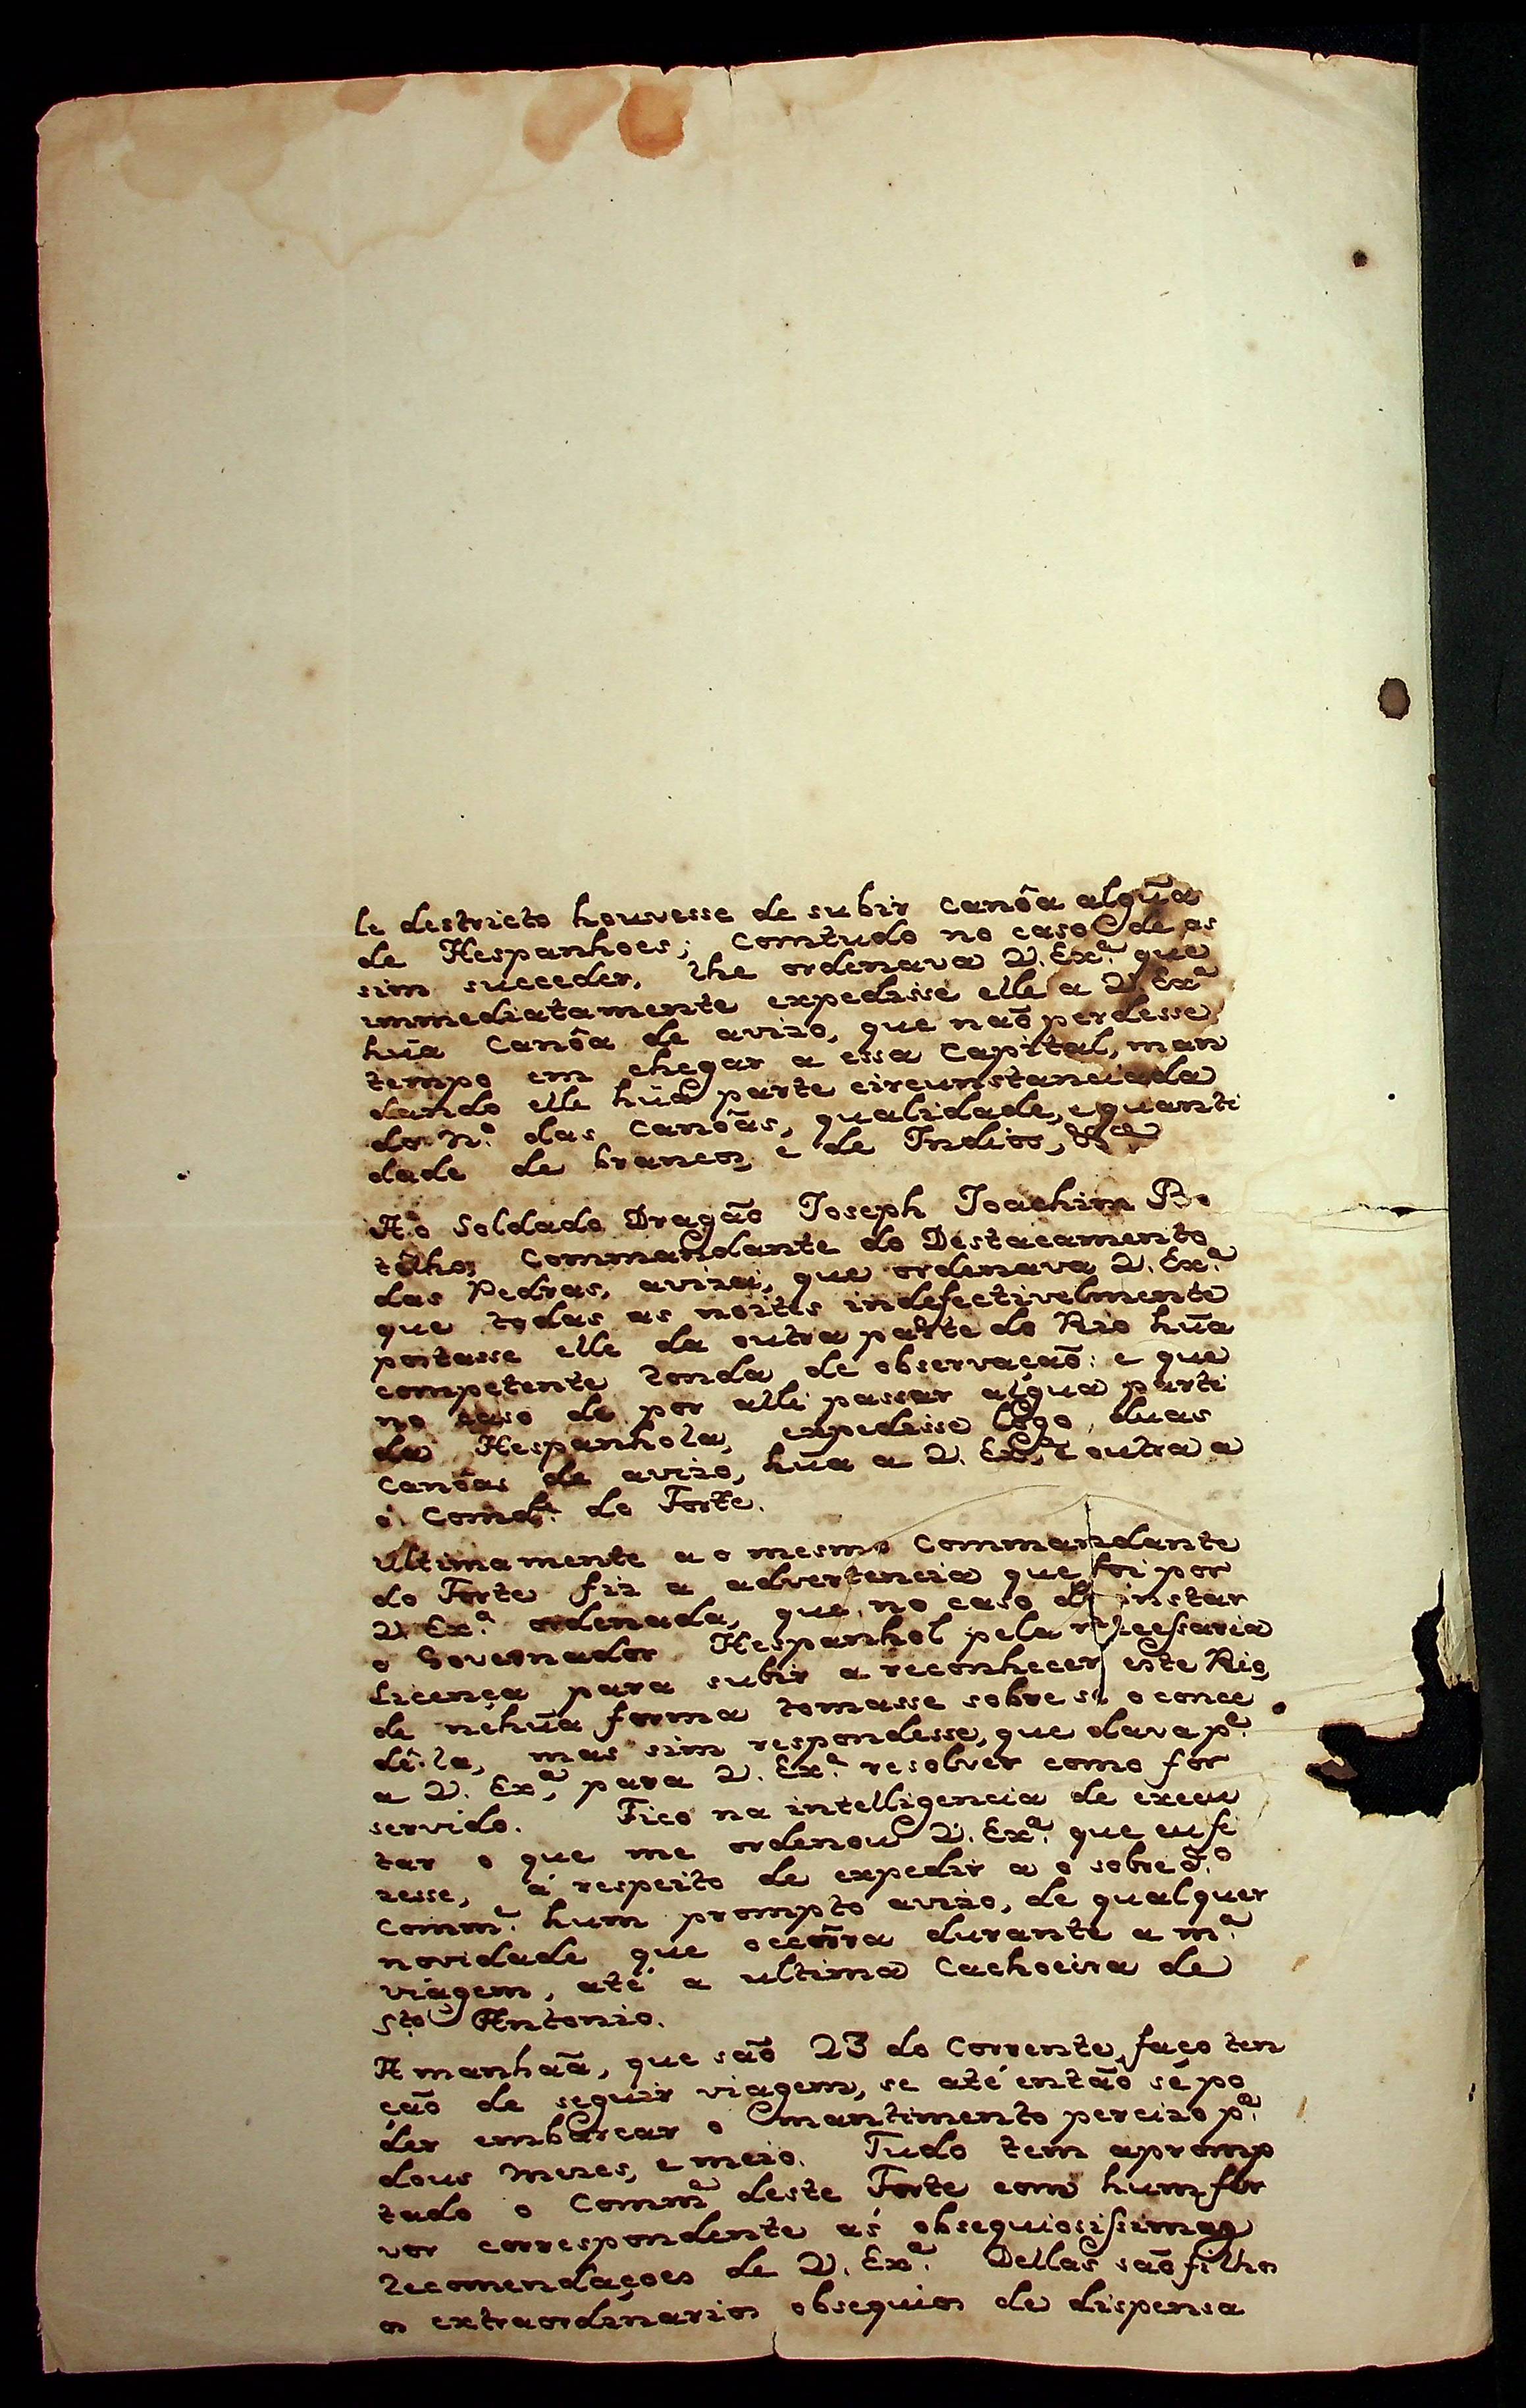 le destricto houvesse de subir canôa algũa
de Hespanhoes; comtudo no caso de as
sim succeder, lhe ordenava V. Ex.ª que
immediatamente expedisse elle a V. Ex.ª
hũa canôa de avizo, que naõ perdesse
tempo em chegar a essa Capital, man
dando elle hũa parte circunstanciada
do N.º das canôas, qualidade, e quanti
dade de brancos, e de Indios, &.ª
Ao Soldado Dragaõ Joseph Joachim Bo
telho, Commandante do Destacamento
das Pedras, avizei, que ordenava V. Ex.ª
que todas as noites indefectivelmente
postasse elle da outra parte do Rio hũa
competente ronda de observaçaõ: e que
no caso de por alli passar algũa parti
da Hespanhola, expedisse logo duas
canôas de avizo, hũa a V. Ex.ª, e outra a
o Comd.e do Forte.
Ultimamente a o mesmo Commandante
do Forte fiz a advertencia que foi por
V. Ex.ª ordenada, que no caso de instar
o Governador Hespanhol pela necessaria
licença para subir a reconhecer este Rio,
de nẽhũa forma tomasse sobre si o conce
dê-la, mas sim respondesse, que dava p.e
a V. Ex.ª, para V. Ex.ª resolver como for
servido. Fico na intelligencia de execu
tar o que me ordenou V. Ex.ª que eu fi
zesse, á respeito de expedir a o sobred.º
Comm.e hum prompto avizo, de qualquer
novidade que occorra durante a m.ª
viagem, até a ultima Cachoeira de
S.to Antonio.
Amanhaã, que saõ 23 do Corrente, faço ten
çaõ de seguir viagem, se até entaõ se po
der embarcar o mantimento percizo p.ª
dous mezes, e meio. Tudo tem apromp
tado o Comm.e deste Forte com hum fer
vor correspondente ás obsequiosissimas
recomendaçoes de V. Ex.ª Dellas saõ filhos
os extraordinarios obsequios de dispensa